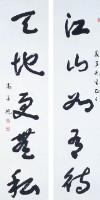 江山如有待
天地更無私